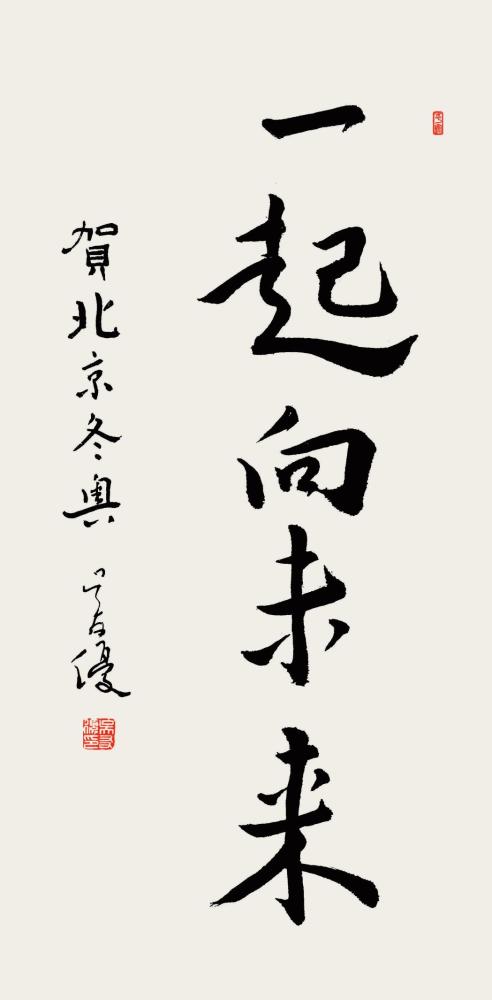 一起向未来
賀北京冬奥